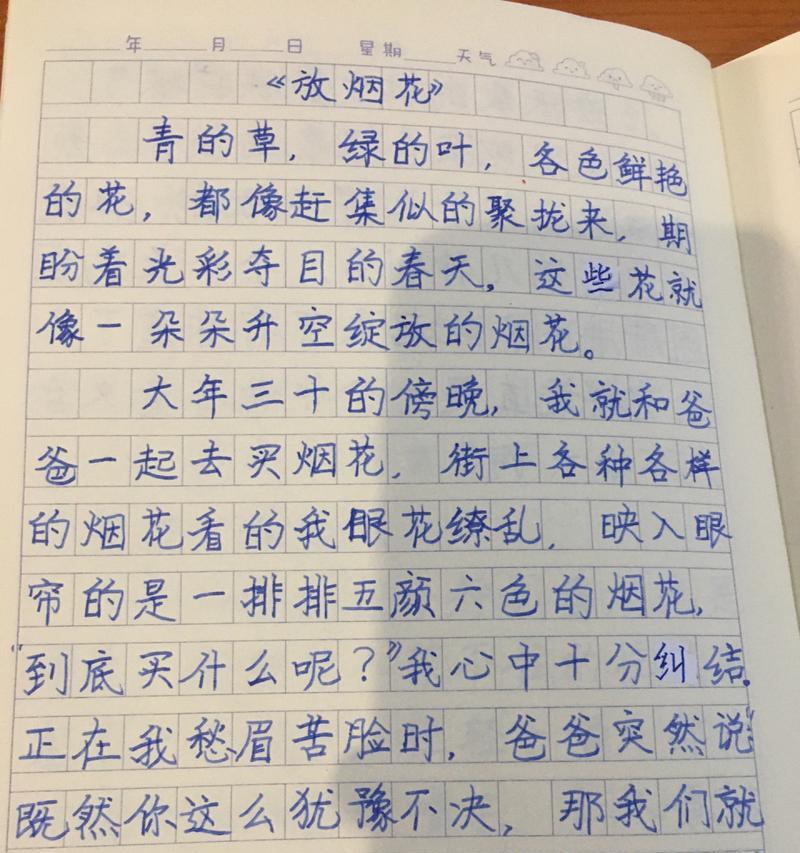 年 月 日 星期 天气
《放烟花》
青的草，绿的叶，各色鲜艳
的花，都像赶集似的聚拢来，期
盼着光彩夺目的春天。这些花就
像一朵朵升空绽放的烟花。
大年三十的傍晚，我就和爸
爸一起去买烟花，街上各种各样
的烟花看的我眼花缭乱，映入眼
帘的是一排排五颜六色的烟花，
“到底买什么呢？”我心中十分纠结。
正在我愁眉苦脸时，爸爸突然说“
既然你这么犹豫不决，那我们就